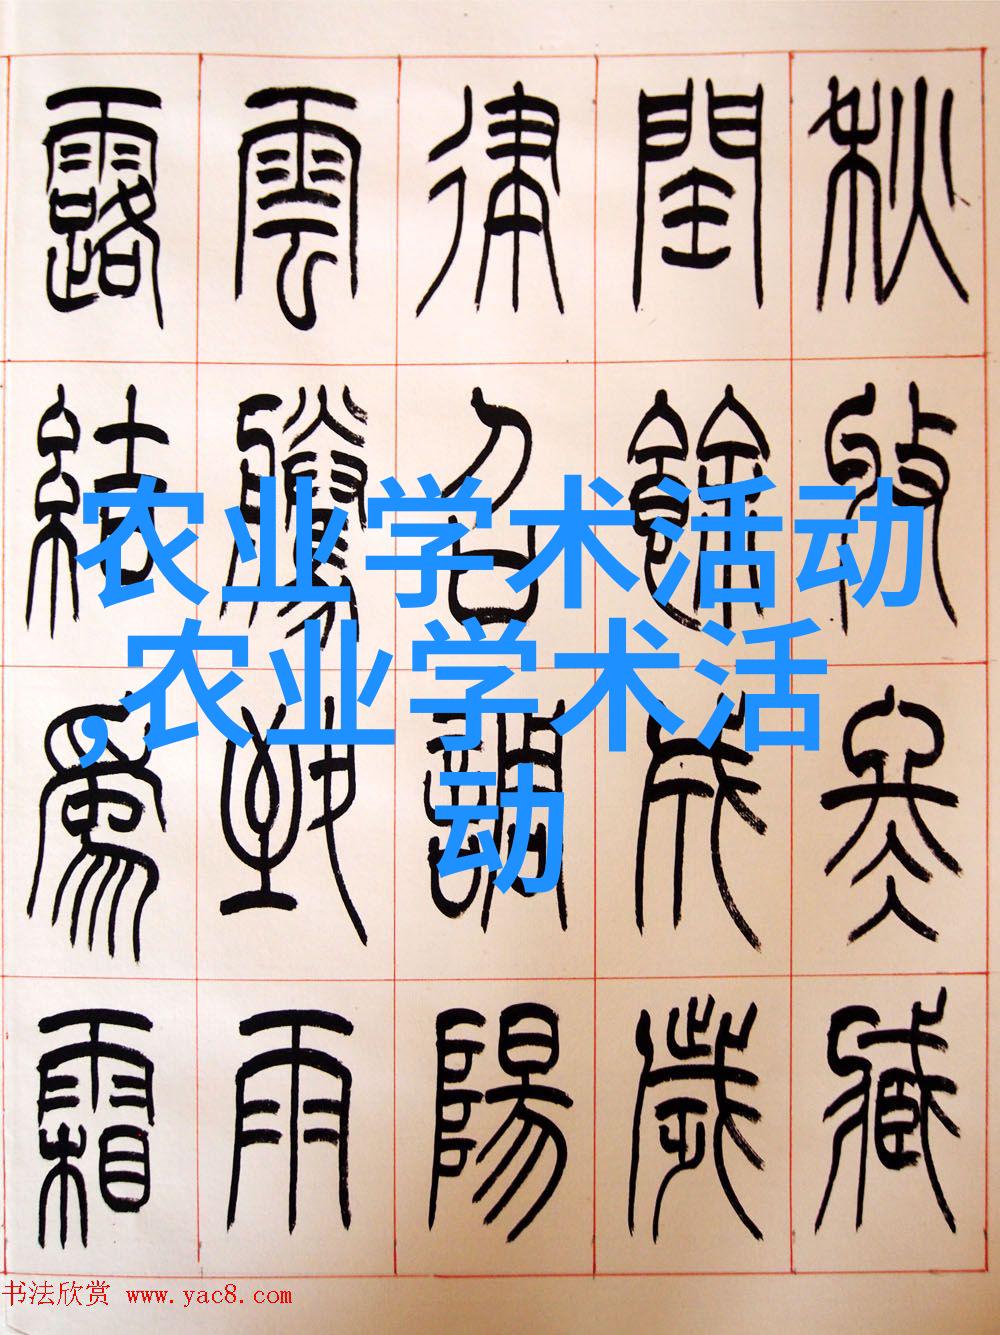 秋收冬藏
閏餘成歲
律召調陽
雲騰致雨
露結爲霜
农业学术活动
,农业学术活
动
书法欣赏 www.yac8.com